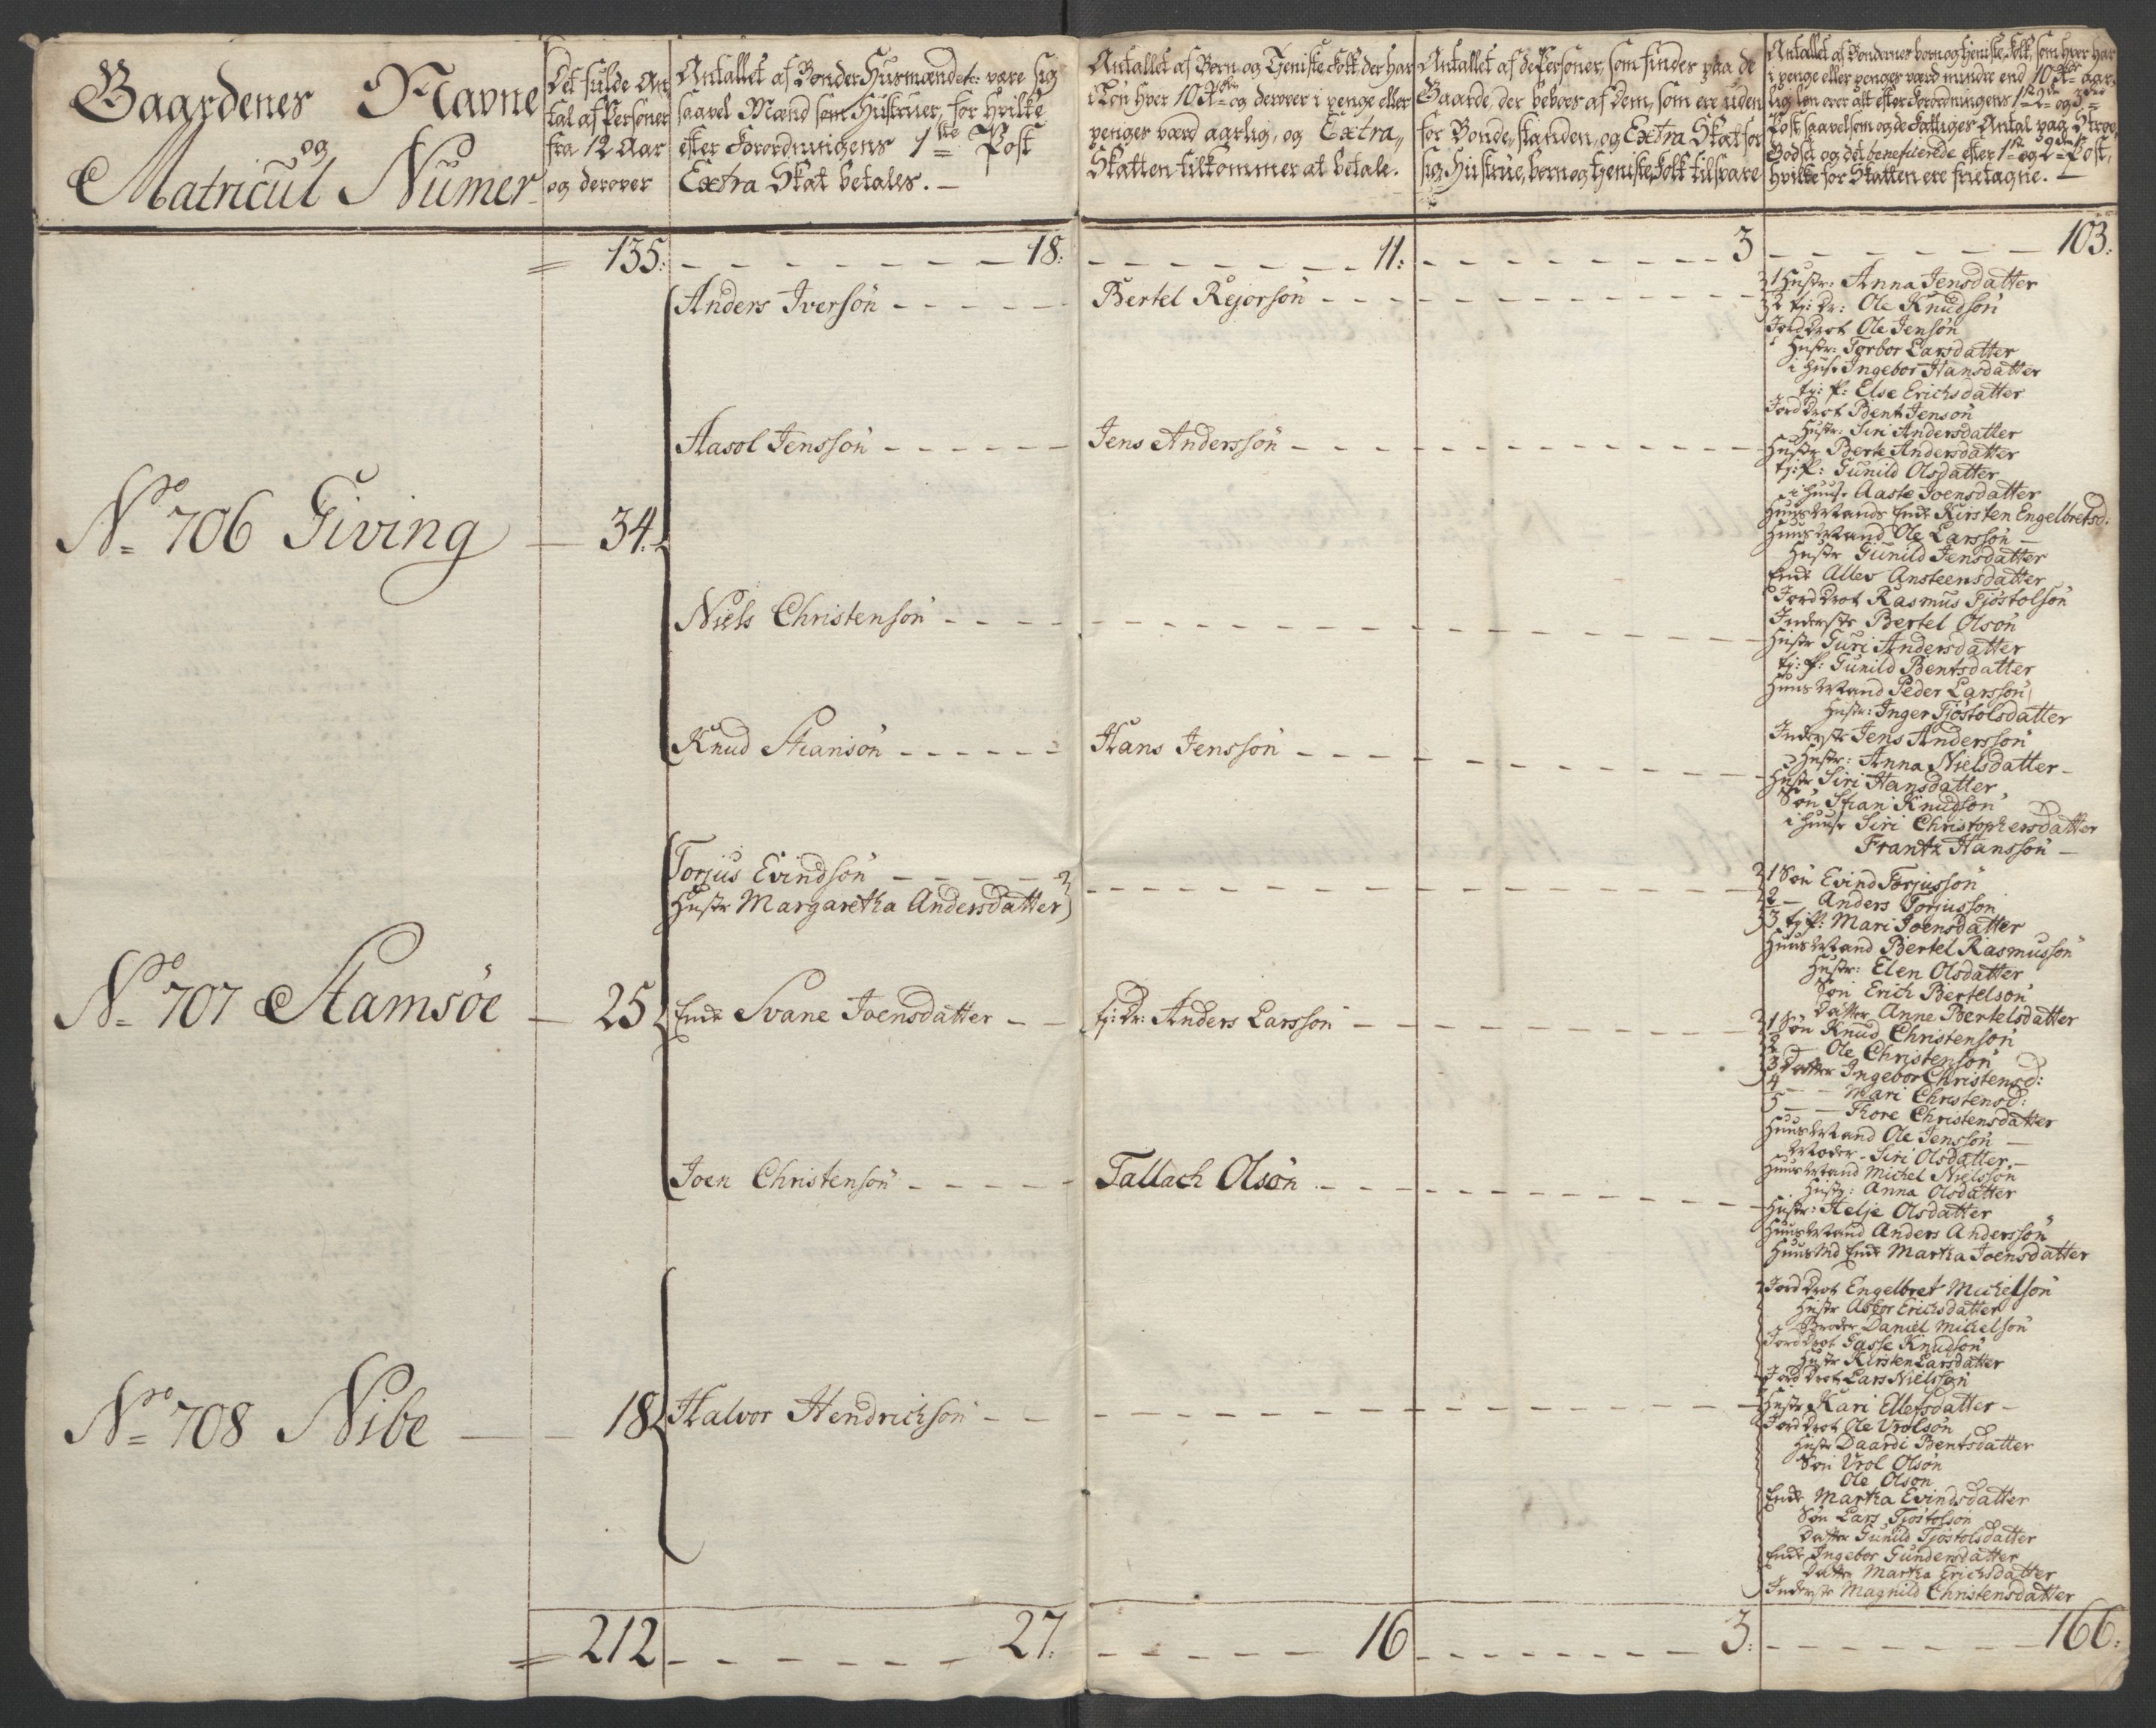 Gaardenes Navne
og
Matricul Numer
Det fulde An
tal af Personer
fra 12 Aar
og derover
Antallet af Bønder Husmænd etc: være sig
saavel Mænd som Hustruer, for hvilke
efter Forordningens 1ste Post
Extra Skat betales. —
Antallet af Børn og Tjeniste Folk der har
i Løn hver 10 Rdr og derover i penge eller
penges værd aarlig, og Extra
Skatten tilkommer at betale.
Antallet af de Personer, som findes paa de
Gaarde, der beboes af Dem, som ere uden
for Bondestanden, og Extra Skat for
sig Hustrue, børn og tjeniste Folk tilsvare
Antallet af Bøndernes børn og tjeniste Folk, som hver har
i penge eller penges værd mindre end 10 Rdr aar-
lig løn over alt efter Forordningens 1ste 2den og 3die
Post saavelsom og de Fattiges Antal paa Strøe
Godset og det beneficerede efter 1ste og 2den Post,
hvilke for Skatten ere frietagne. —
= 135. — 18: — 11: — 3 — 103:
No 706 Giving — 34.
Anders Iversøn
Aasol Jenssøn
Niels Christensøn
Knud Stiansøn
Bertel Rejorsøn
Jens Anderssøn
Hans Jenssøn
1 Hustr: Anna Jensdatter
2 tj: Dr: Ole Knudsøn
Jorddrot Ole Jensøn
Hustr: Torbor Larsdatter
i huse Ingebor Hansdatter
tj: P: Else Erichsdatter
Jorddrot Bent Jensøn
Hustr: Siri Andersdatter
Hustr Berte Andersdatter
tj: P: Gunild Olsdatter
i huuse Aaste Joensdatter
Huus Mands Enke Kirsten Engelbretsd:
Huus Mand Ole Larssøn —
Hustr Gunild Jensdatter
Enke Allev Ansteensdatter
Jorddrot Rasmus Tjøstolsøn
Inderste Bertel Olsøn
Hustr Guri Andersdatter
tj: P: Gunild Bentsdatter
Huus Mand Peder Larssøn
Hustr: Inger Tjøstolsdatter
Inderste Jens Anderssøn
Hustr: Anna Nielsdatter —
Hustr Siri Hansdatter
Søn Stian Knudsøn
i huuse Siri Christophersdatter
Frantz Hanssøn —
No 707 Hamsøe — 25
Torjus Evindsøn
Hustr Margaretha Andersdatter
Enke Svane Joensdatter
Joen Christensøn
tj: Dr: Anders Larssøn
Tallach Olsøn
1 Søn Evind Torjussøn
2 — Anders Torjussøn
3 tj P: Mari Joensdatter
Huus Mand Bertel Rasmussøn
Hustr: Elen Olsdatter
Søn Erich Bertelsøn
Datter Anne Bertelsdatter
1 Søn Knud Christensøn
2 — Ole Christensøn
3 Datter Ingebor Christensd:
4 — Mari Christensd:
5 — Tore Christensdatter
Huus Mand Ole Jenssøn —
Moder Siri Olsdatter —
Huus Mand Michel Nielssøn
Hustr: Anna Olsdatter
Hustr: Helje Olsdatter
Huus Mand Anders Anderssøn
Huus Md Enke Martha Joensdatter
No 708 Nibe — 18
Halvor Hendrichsøn
Jorddrot Engelbret Michelsøn
Hustr Asbor Erichsdatter
Broder Daniel Michelsøn
Jorddrot Gasse Knudsøn
Hustr Kirsten Larsdatter
Jorddrot Lars Nielssøn
Hustr Kari Ellefsdatter —
Jorddrot Ole Vrolsøn
Hustr Daardi Bentsdatter
Søn Vrol Olsøn
Ole Olsøn
Enke Martha Evindsdatter
Søn Lars Tjøstolsøn
Datter Gunild Tjøstolsdatter
Enke Ingebor Gundersdatter
Datter Martha Erichsdatter
Inderste Magnild Christensdatter
= 212 — 27. — 16 — 3: — 166: